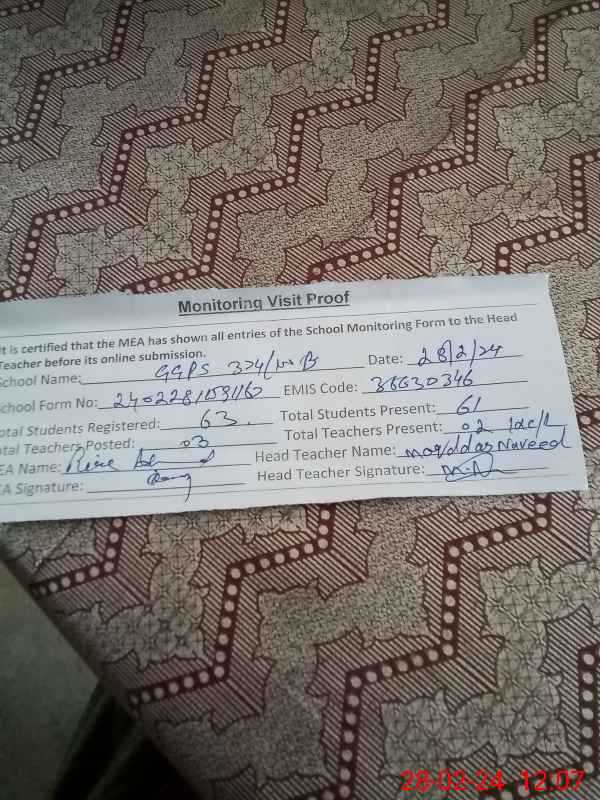 Monitoring Visit Proof
It is certified that the MEA has shown all entries of the School Monitoring Form to the Head
Teacher before its online submission.
School Name: GGPS 324/ Date: 28/2/24
School Form No: EMIS Code: 36630346
otal Students Registered: 63 Total Students Present: 61
otal Teachers Posted: 03 Total Teachers Present: 02
EA Name: Head Teacher Name: Naveed
EA Signature: Head Teacher Signature:
28-02-24 12:07